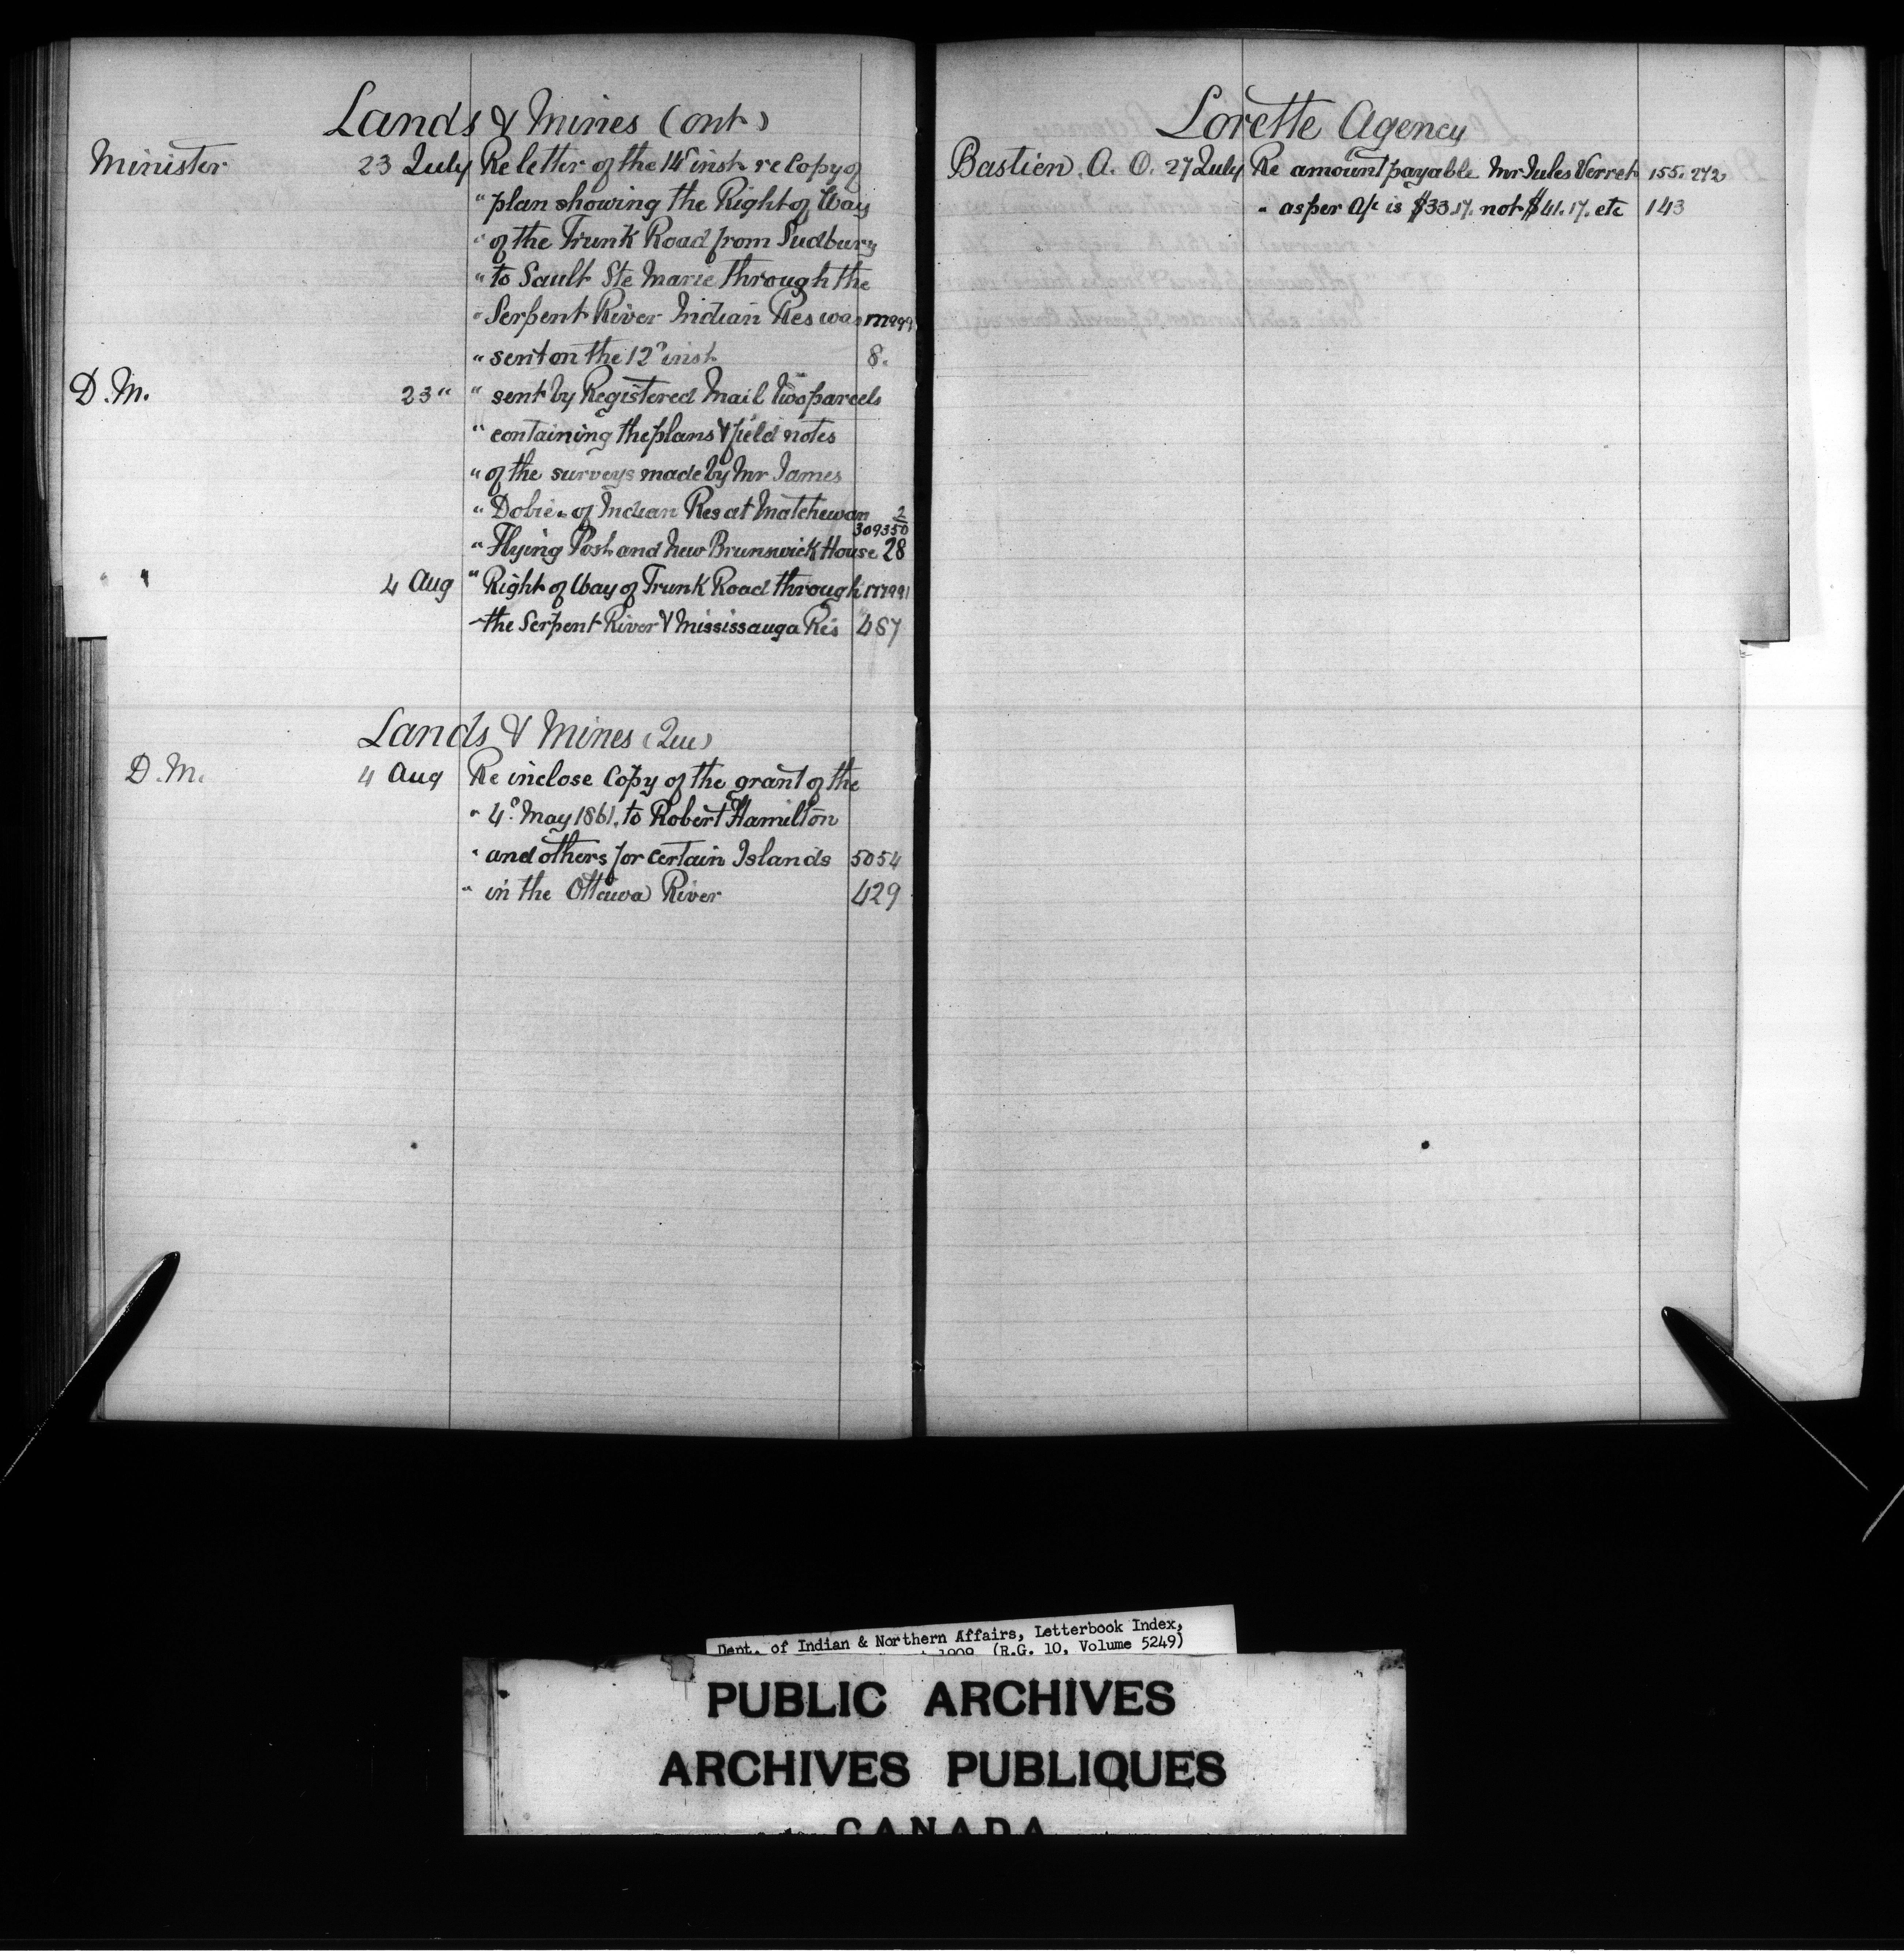 Lands & Mines (Ont)
Minister 23 July Re letter of the 14" inst re Copy of
" plan showing the Right of Way
" of the Trunk Road from Sudbury
" to Sault Ste Marie through the
" Serpent River Indian Res was
" sent on the 12" inst 8.
D.M. 23 " " sent by Registered Mail Two parcels
" containing the plans & field notes
" of the surveys made by Mr James
" Dobie. of Indian Res at Matchewan 2
309350
" Flying Post and New Brunswick House 28
" 4 Aug " Right of Way of Trunk Road through
the Serpent River & Mississauga Res 487
Lands & Mines (Que)
D.M. 4 Aug Re inclose Copy of the grant of the
" 4" May 1861. to Robert Hamilton
" and others for certain Islands 5054
" in the Ottawa River 429
Lorette Agency
Bastien. A. O. 27 July Re amount payable Mr Jules Verret 155.272
" as per a/c is $33.17. not $41.17. etc 143
Dept. of Indian & Northern Affairs, Letterbook Index,
1909 (R.G. 10, Volume 5249)
PUBLIC ARCHIVES
ARCHIVES PUBLIQUES
CANADA